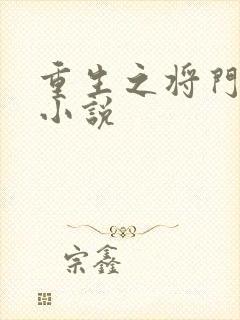 重生之将門
小說
宗鑫